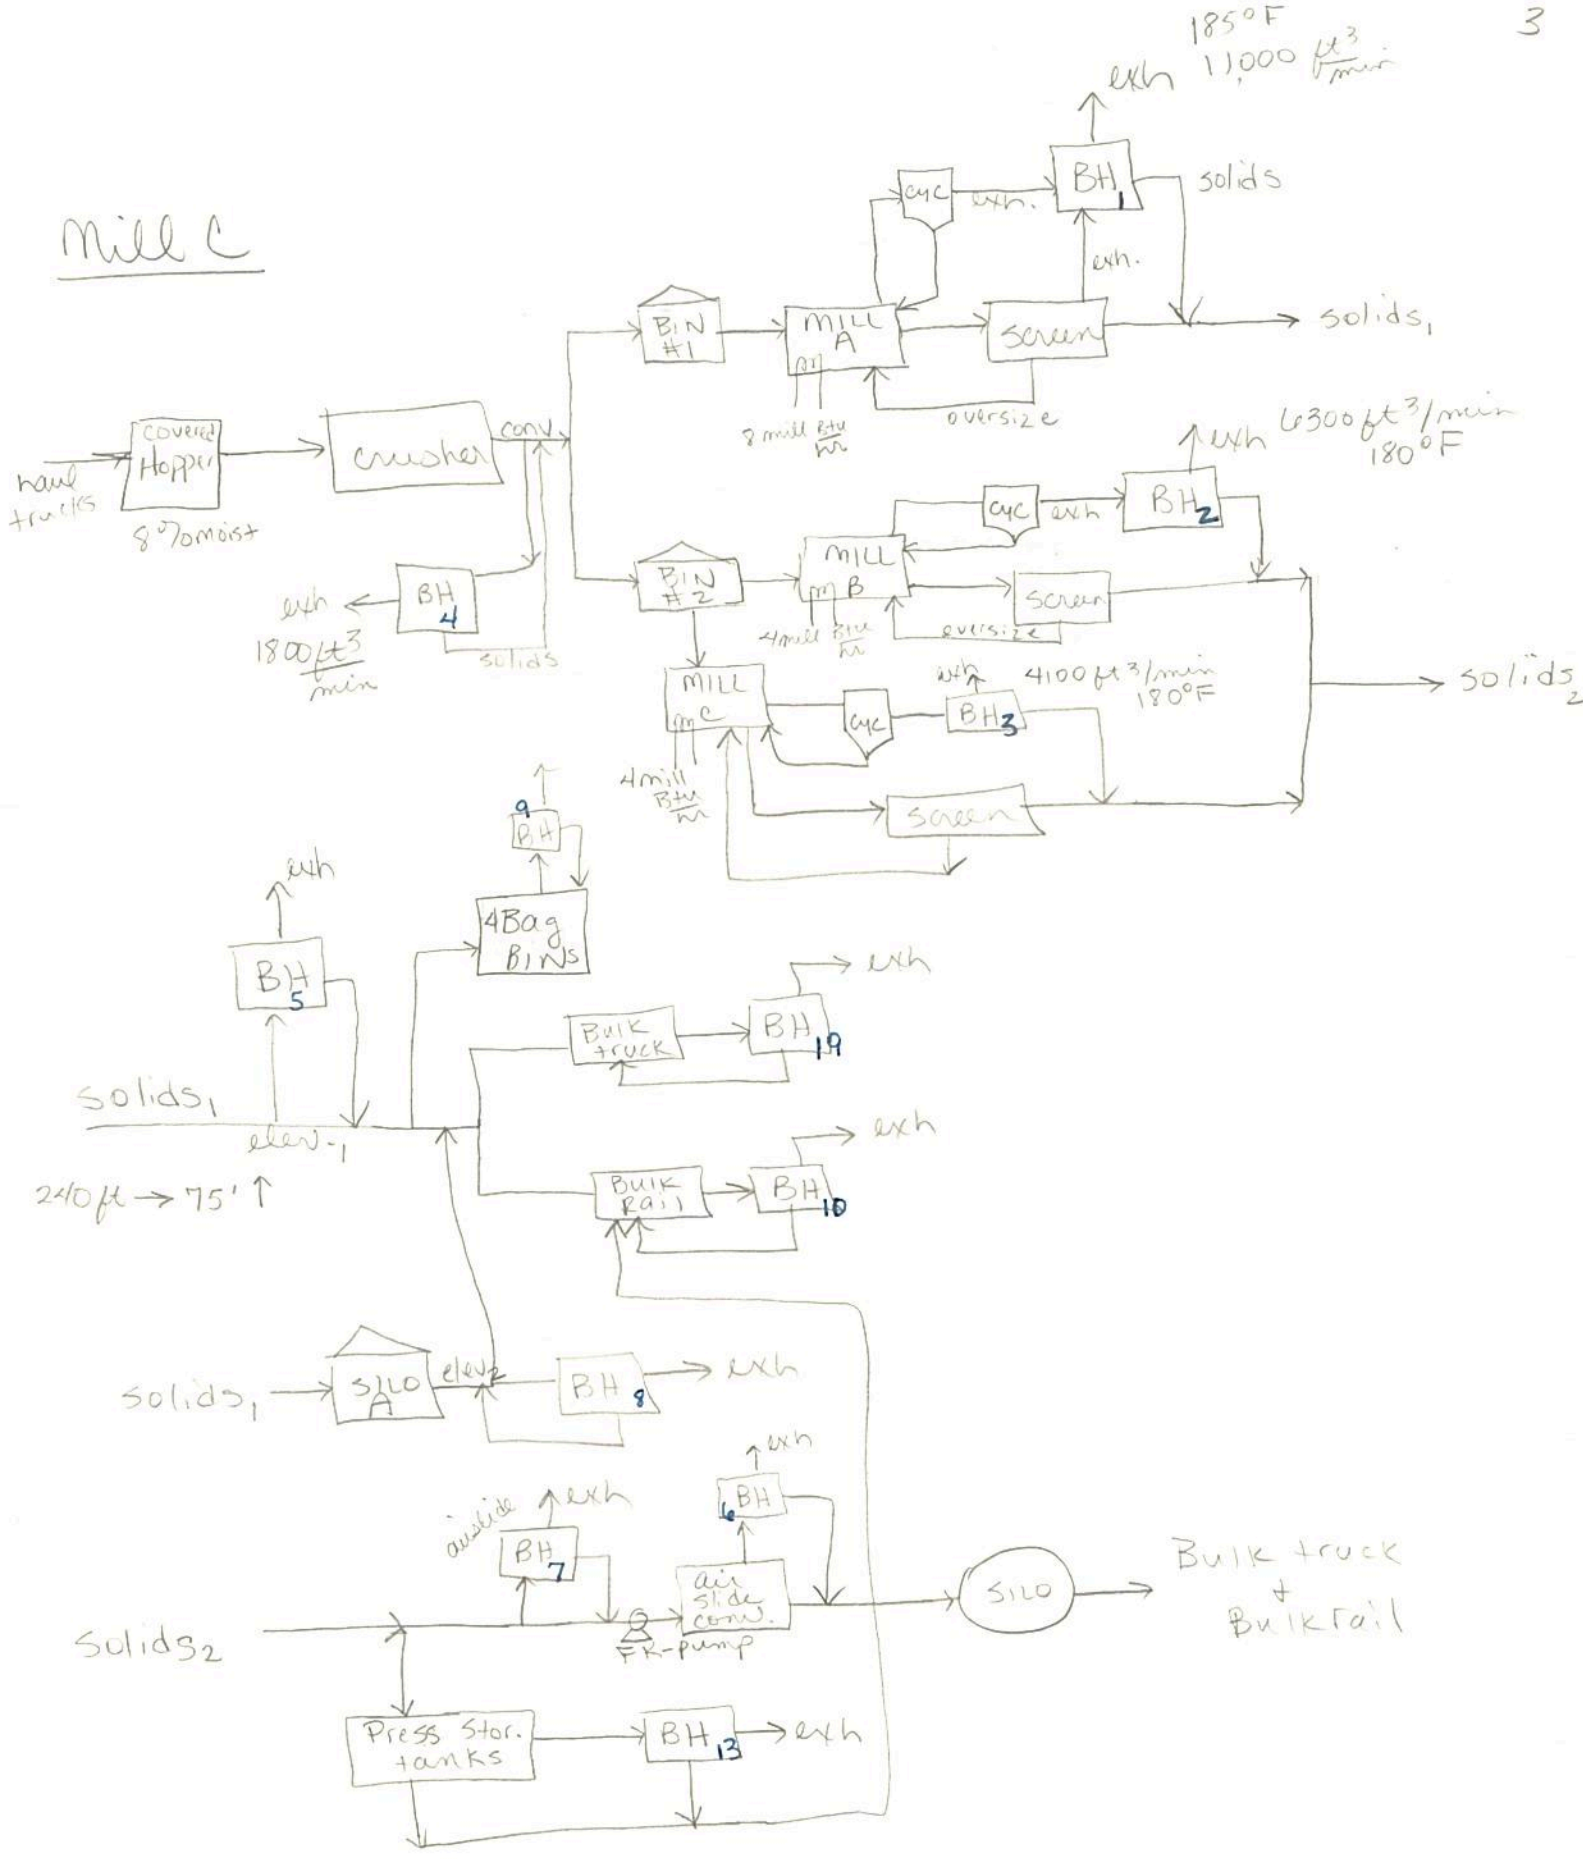 3
185°F
exh 11,000 ft³/min
Mill C
cyc
exh.
BH 1
solids
exh.
BIN #1
MILL A
screen
solids₁
8 mill Btu/hr
oversize
haul trucks
covered Hopper
8% moist
crusher
conv.
exh 6300 ft³/min
180°F
cyc
exh
BH 2
BIN #2
MILL B
screen
4 mill Btu/hr
oversize
exh
BH 4
1800 ft³/min
solids
MILL C
cyc
exh
4100 ft³/min
180°F
BH 3
solids₂
4 mill Btu/hr
screen
9
BH
exh
BH 5
4 Bag BINS
exh
Bulk truck
BH 19
solids₁
elev-1
240ft → 75' ↑
exh
Bulk Rail
BH 10
solids₁
SILO A
elev2
BH 8
exh
exh
6 BH
airslide
exh
BH 7
air slide conv.
SILO
Bulk truck
+
Bulk rail
Solids₂
FK-pump
Press Stor. tanks
BH 13
exh